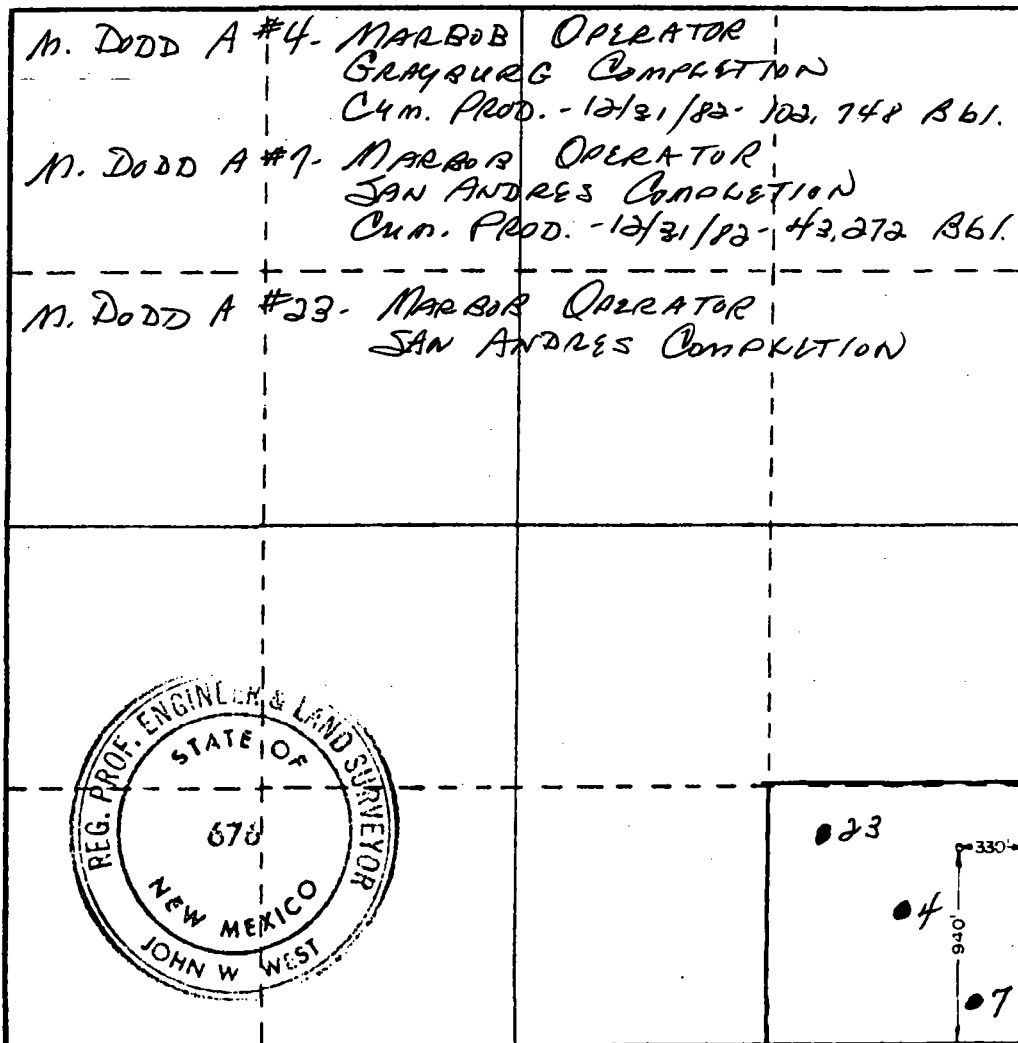 M. DODD A #4- MARBOB OPERATOR
GRAYBURG COMPLETION
CUM. PROD. - 12/31/82- 102,748 Bbl.
M. DODD A #7- MARBOB OPERATOR
SAN ANDRES COMPLETION
CUM. PROD. - 12/31/82- 43,272 Bbl.
M. DODD A #23- MARBOB OPERATOR
SAN ANDRES COMPLETION
REG. PROF. ENGINEER & LAND SURVEYOR
STATE OF
676
NEW MEXICO
JOHN W WEST
23
330'
4
940'
7